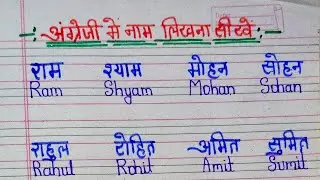 -: अंग्रेजी में नाम लिखना सीखें :-
राम श्याम मोहन सोहन
Ram Shyam Mohan Sohan
राहुल रोहित अमित सुमित
Rahul Rohit Amit Sumit